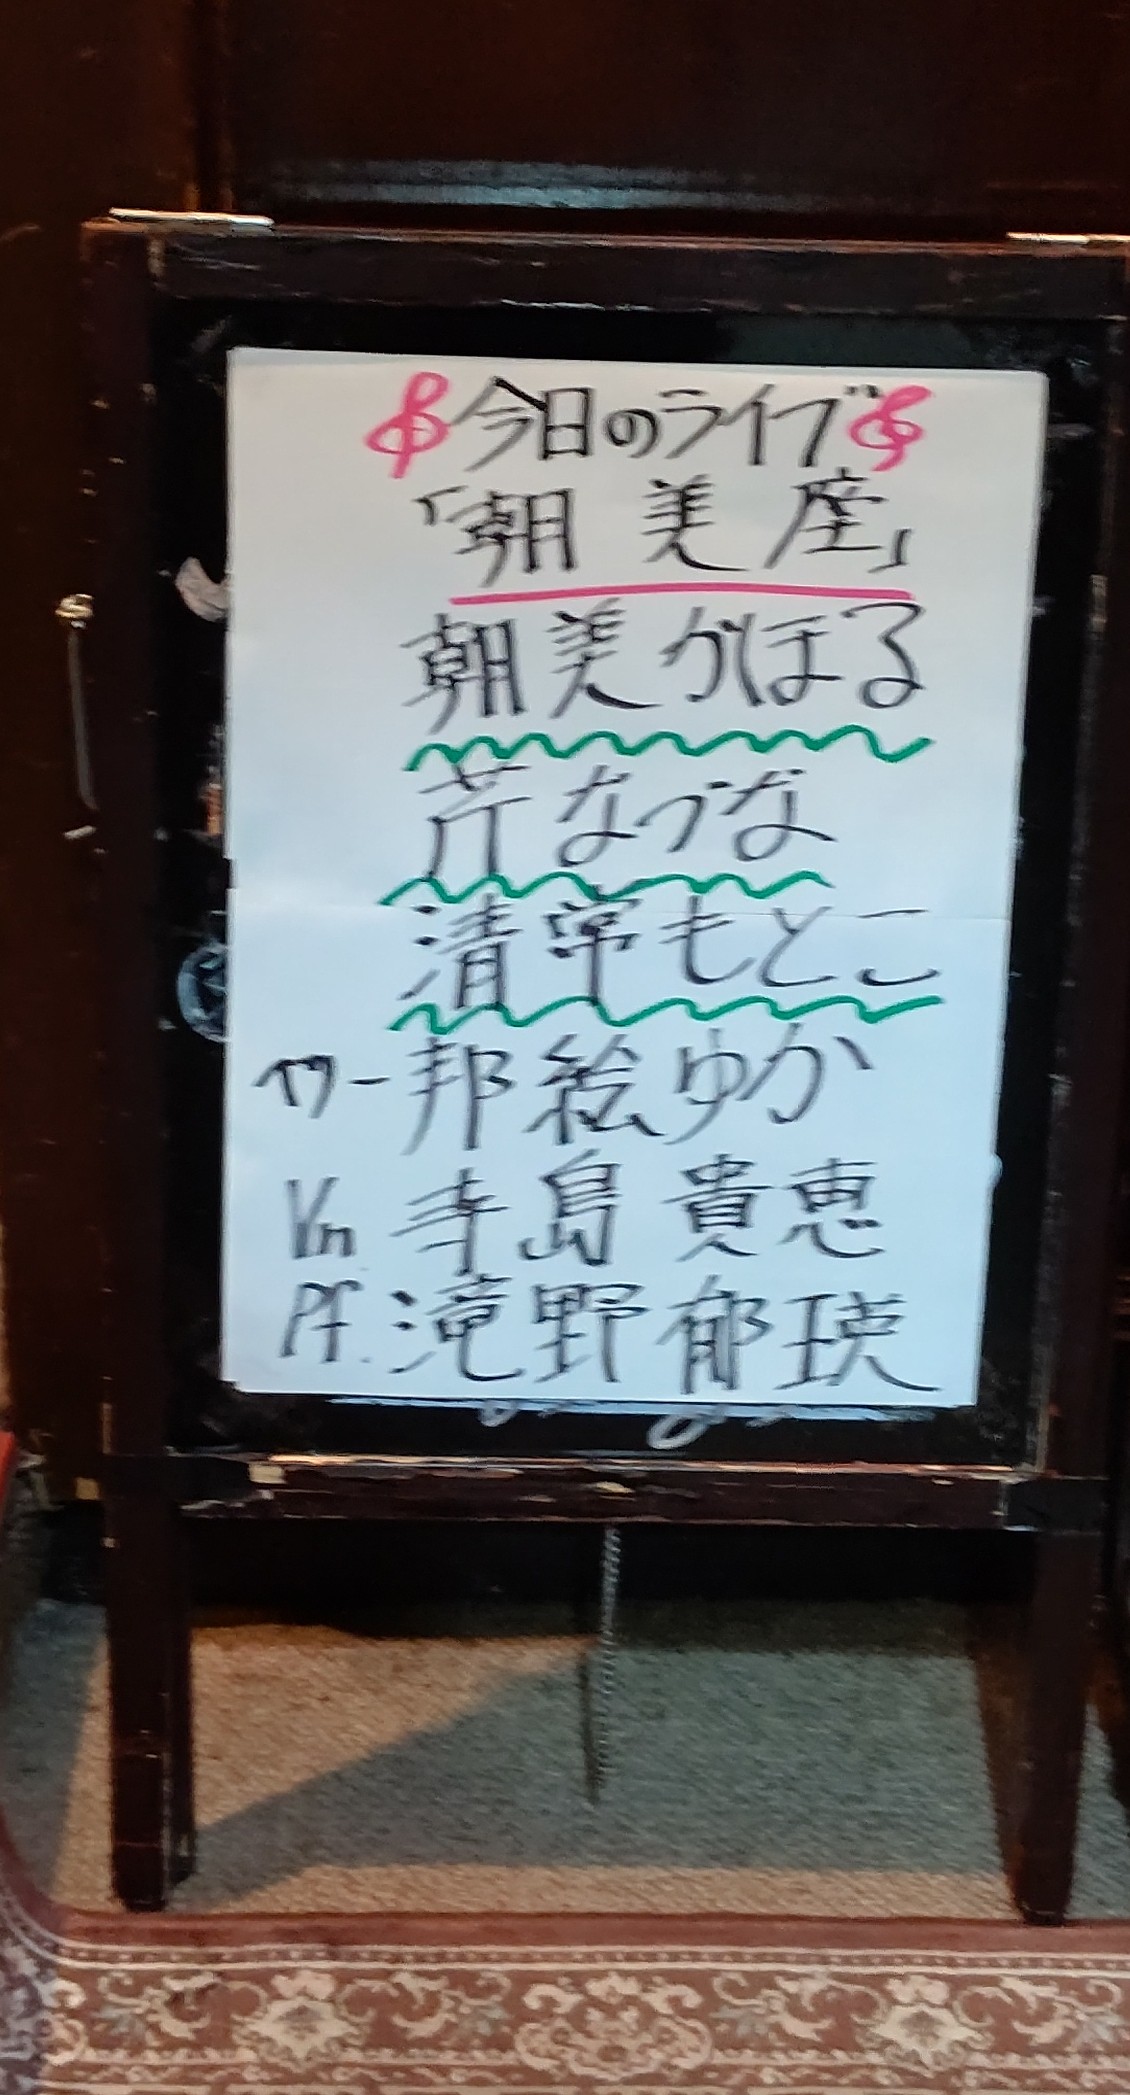 今日のライブ
「朝美座」
朝美かほる
芹なづな
清常もとこ
ワー邦絵ゆか
Vn 寺島貴恵
Pf. 滝野郁瑛